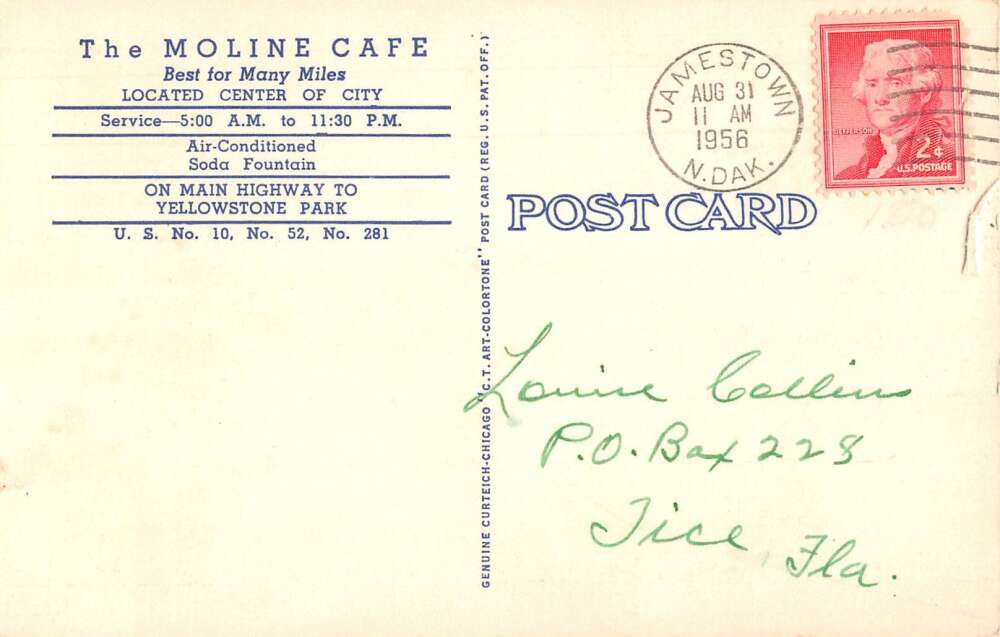 The MOLINE CAFE
Best for Many Miles
LOCATED CENTER OF CITY
Service—5:00 A.M. to 11:30 P.M.
Air-Conditioned
Soda Fountain
ON MAIN HIGHWAY TO
YELLOWSTONE PARK
U. S. No. 10, No. 52, No. 281
GENUINE CURTEICH-CHICAGO "C.T. ART-COLORTONE" POST CARD (REG. U.S. PAT. OFF.)
JAMESTOWN
AUG 31
11 AM
1956
N.DAK.
JEFFERSON
2¢
U.S. POSTAGE
POST CARD
Louise Collins
P.O. Box 228
Tice Fla.